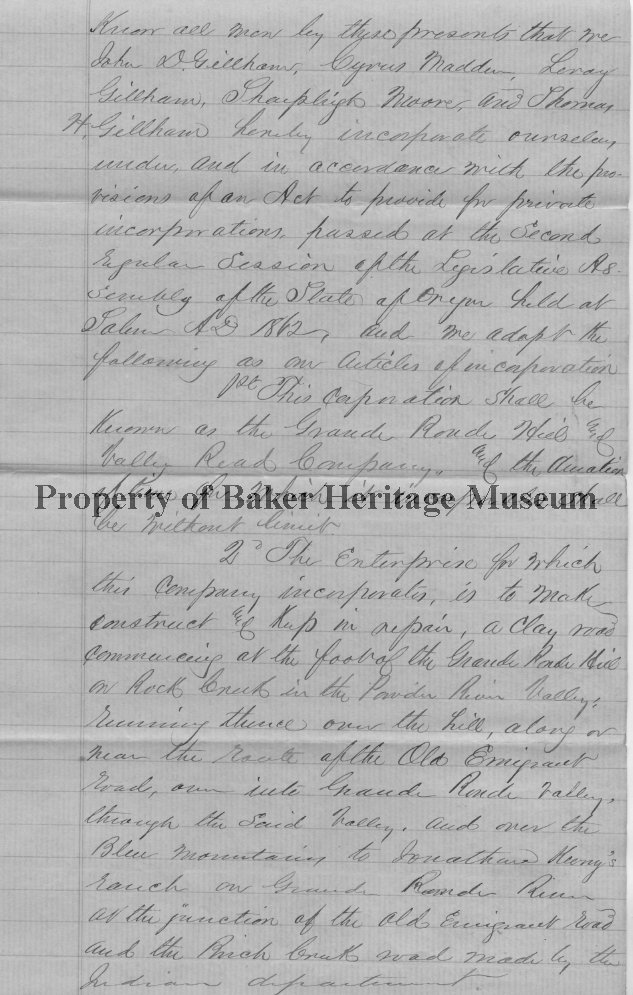 Know all men by these presents that we
John D. Gillham, Cyrus Madden, Leroy
Gillham, Sharpligh Moore, and Thomas
H. Gillham hereby incorporate ourselves
under, and in accordance with the pro-
visions of an Act to provide for private
incorporations, passed at the Second
regular Session of the Legislative As-
sembly of the State of Oregon held at
Salem AD 1862, and we adopt the
following as our Articles of incorporation
1st This Corporation shall be
Known as the Grande Ronde Hill &
Valley Road Company. & the duration
Property of Baker Heritage Museum
be without limit.
2d The Enterprise for which
this Company incorporates, is to make
construct & Keep in repair, a Clay road
commencing at the foot of the Grande Ronde Hill
on Rock Creek in the Powder River Valley,
running thence over the hill, along or
near the route of the Old Emigrant
road, over into Grande Ronde Valley,
through the said Valley, and over the
Blue Mountains to Jonathan Keeny's
ranch on Grande Ronde River
at the junction of the old Emigrant road
and the Birch Creek road made by the
Indian department